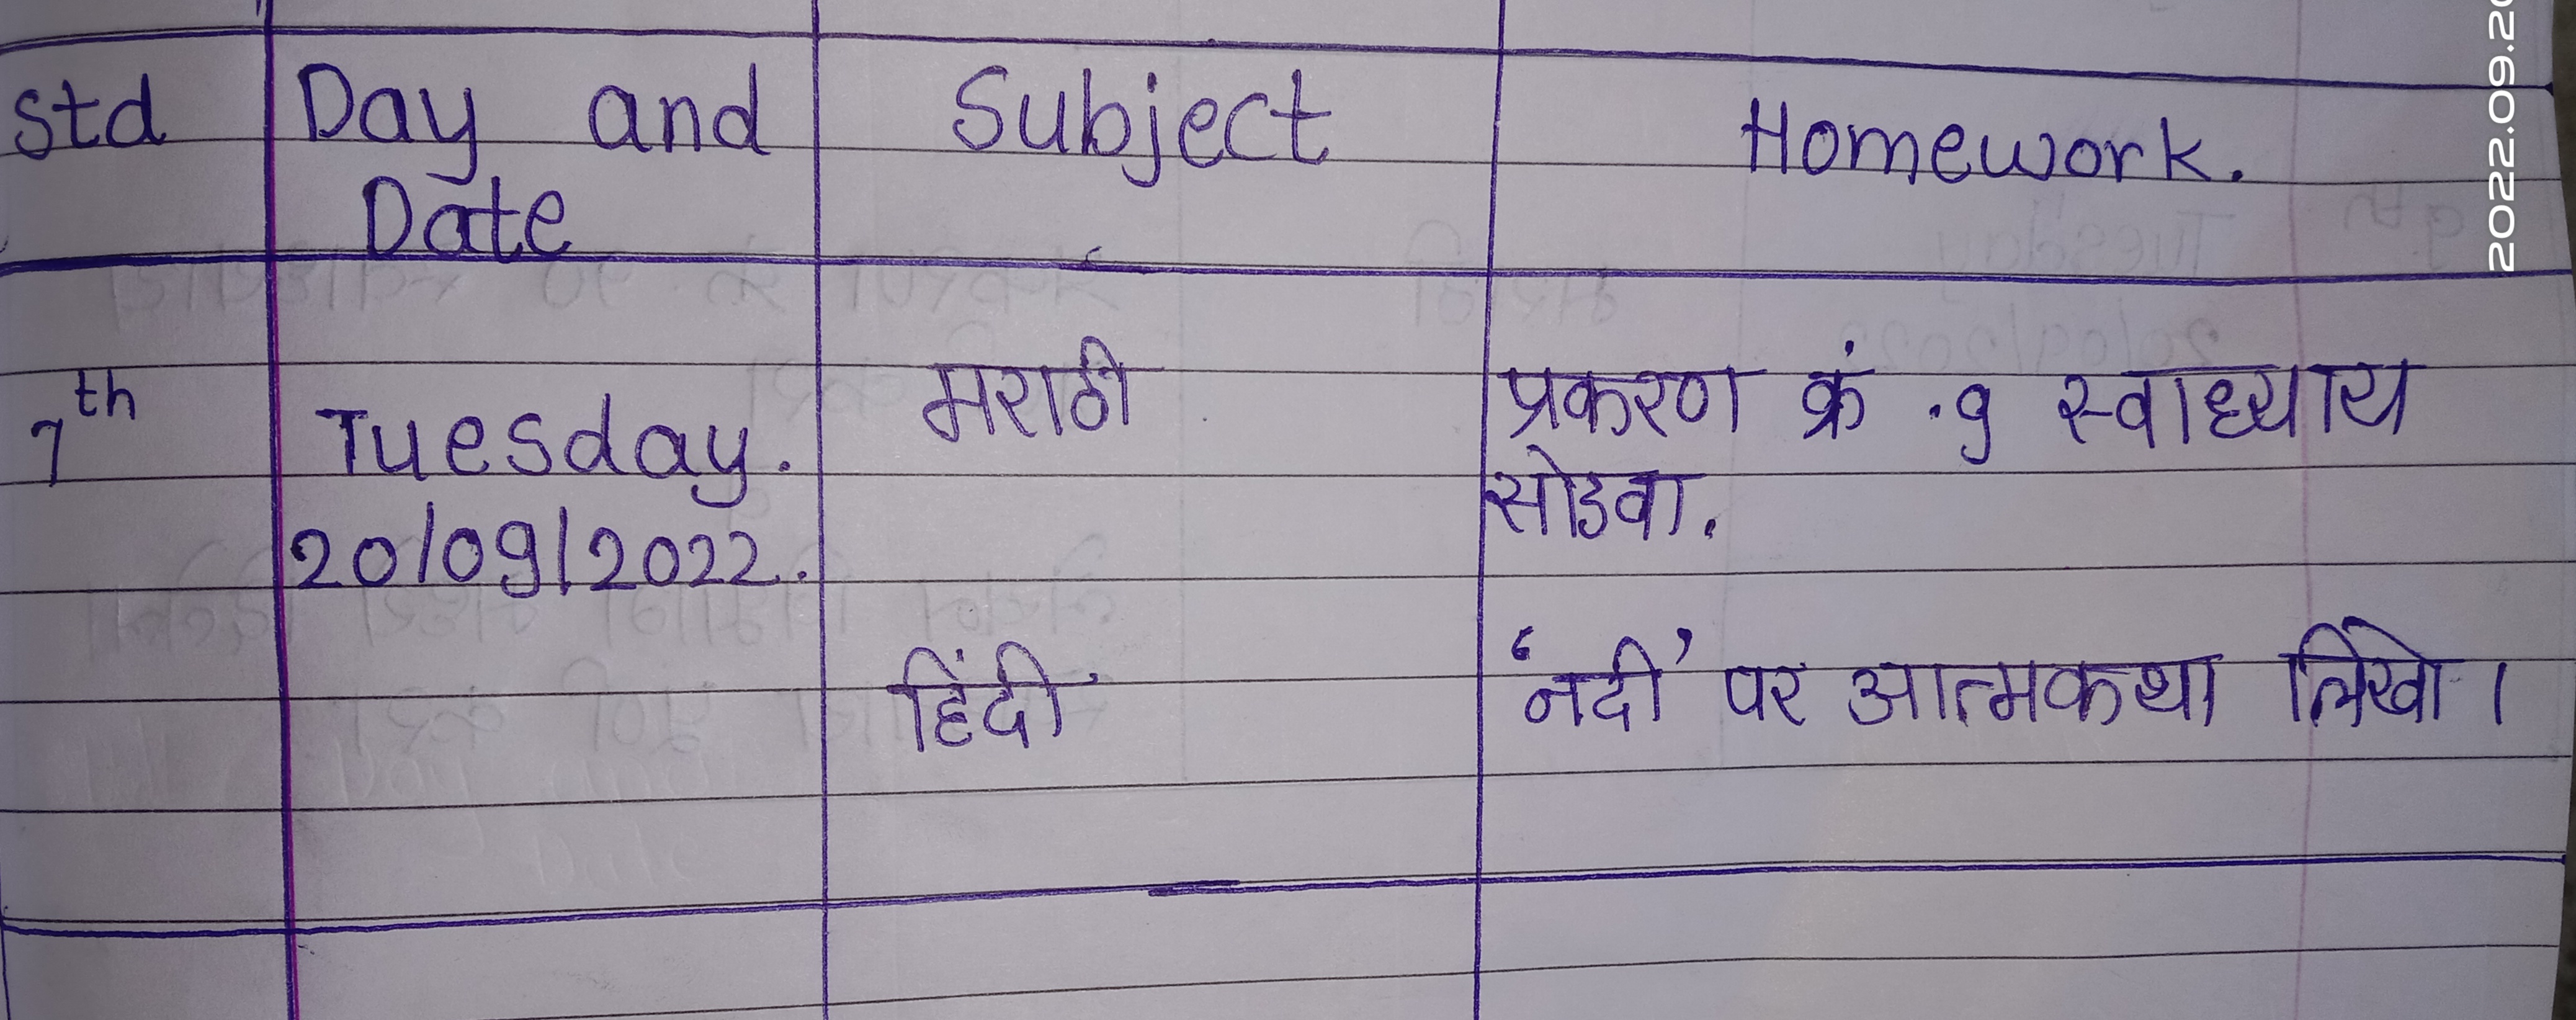 Std Day and Subject Homework.
Date
7th Tuesday. मराठी प्रकरण क्रं .9 स्वाध्याय
सोडवा.
20/09/2022.
हिंदी 'नदी' पर आत्मकथा लिखो।
2022.09.20